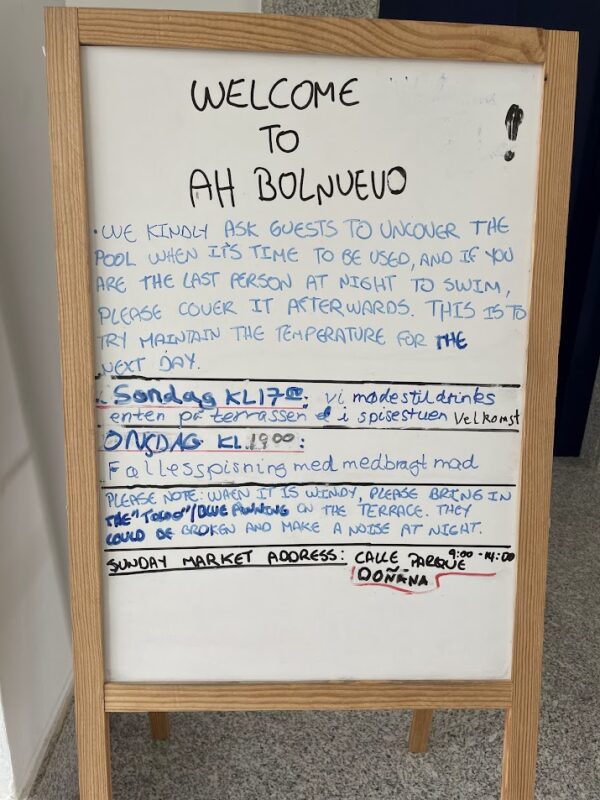 WELCOME
TO
AH BOLNUEVO !
• WE KINDLY ASK GUESTS TO UNCOVER THE
POOL WHEN IT'S TIME TO BE USED, AND IF YOU
ARE THE LAST PERSON AT NIGHT TO SWIM,
PLEASE COVER IT AFTERWARDS. THIS IS TO
TRY MAINTAIN THE TEMPERATURE FOR THE
NEXT DAY.
Søndag KL 17 00: vi mødes til drinks
enten på terrassen el i spisestuen Velkomst
ONSDAG KL. 19 00:
Fællesspisning med medbragt mad
PLEASE NOTE: WHEN IT IS WINDY, PLEASE BRING IN
THE "TOLDO"/BLUE AWNING ON THE TERRACE. THEY
COULD BE BROKEN AND MAKE A NOISE AT NIGHT.
SUNDAY MARKET ADDRESS: CALLE PARQUE 9:00 - 14:00
DOÑANA